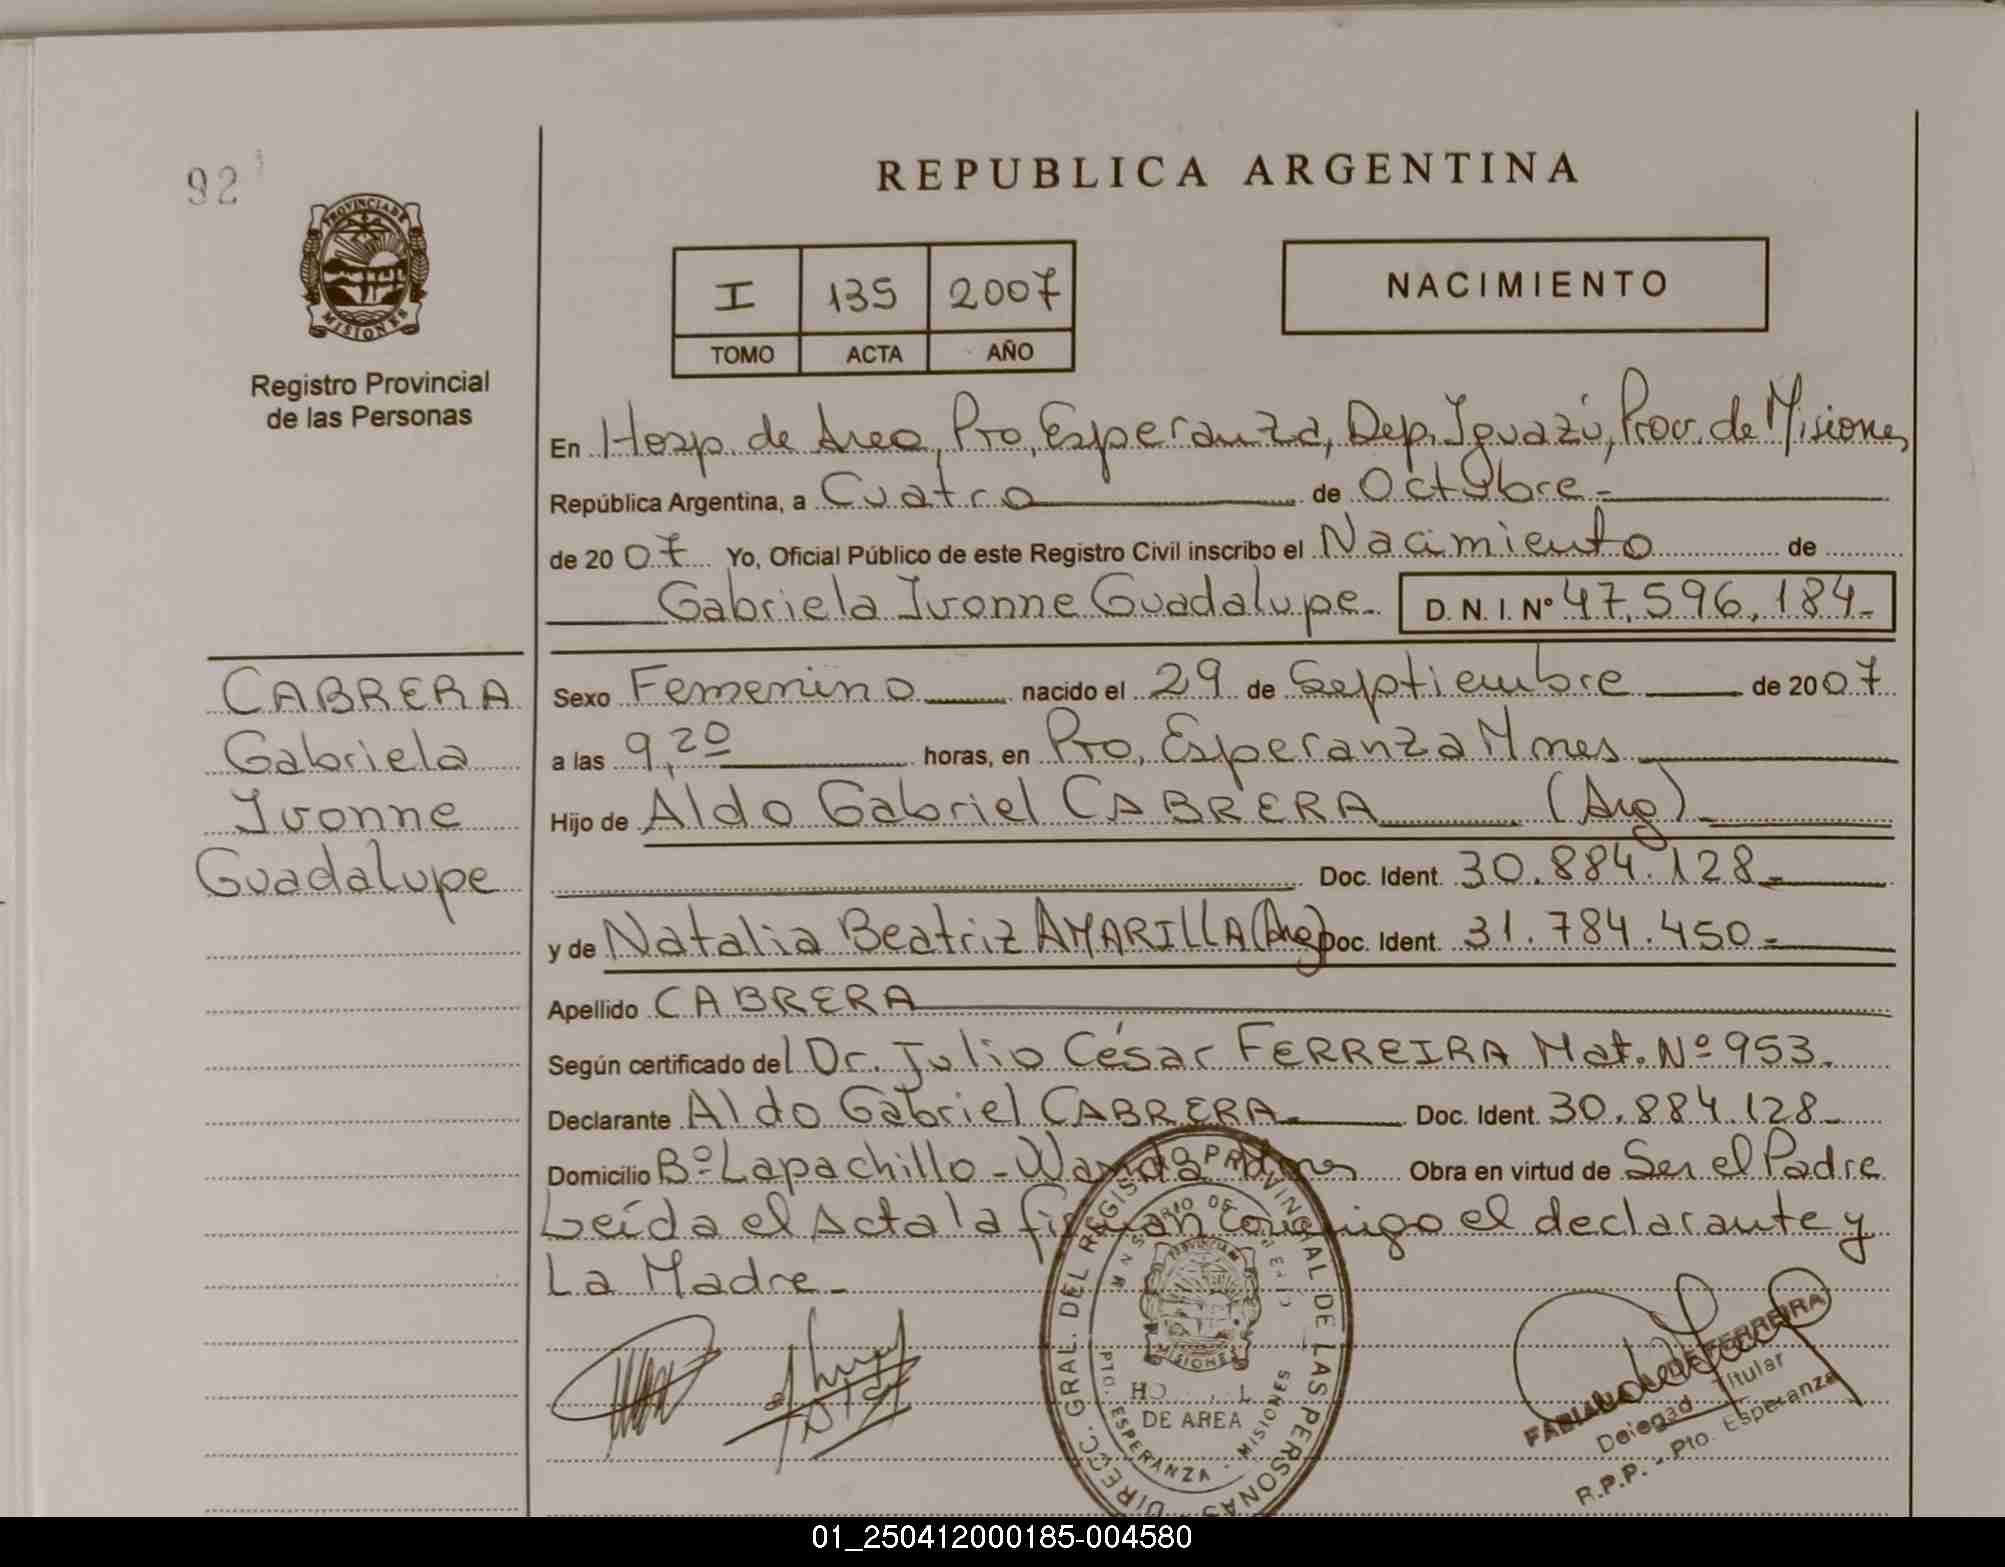 92
PROVINCIA DE
MISIONES
Registro Provincial
de las Personas
REPUBLICA ARGENTINA
I 135 2007
TOMO ACTA AÑO
NACIMIENTO
En Hosp. de Area, Pto, Esperanza, Dep. Iguazú, Prov. de Misiones,
República Argentina, a Cuatro de Octubre.-
de 2007 Yo, Oficial Público de este Registro Civil inscribo el Nacimiento de
Gabriela Ivonne Guadalupe.- D. N. I. Nº 47.596.184.-
CABRERA
Gabriela
Ivonne
Guadalupe
Sexo Femenino nacido el 29 de Septiembre de 2007
a las 9,20 horas, en Pto. Esperanza Mnes
Hijo de Aldo Gabriel CABRERA (Arg)
Doc. Ident. 30.884.128.-
y de Natalia Beatriz AMARILLA (Arg) Doc. Ident. 31.784.450.-
Apellido CABRERA
Según certificado del Dr. Julio César FERREIRA Mat. Nº 953.
Declarante Aldo Gabriel CABRERA.- Doc. Ident. 30.884.128.-
Domicilio Bº Lapachillo - Wanda Mnes Obra en virtud de Ser el Padre
Leída el Acta la firman conmigo el declarante y
La Madre.-
DIRECC. GRAL. DEL REGISTRO PROVINCIAL DE LAS PERSONAS
PROVINCIA DE
MISIONES
DE AREA
PTO. ESPERANZA - MISIONES
DE FERREIRA
Delegad Titular
R.P.P. - Pto. Esperanza
01_250412000185-004580